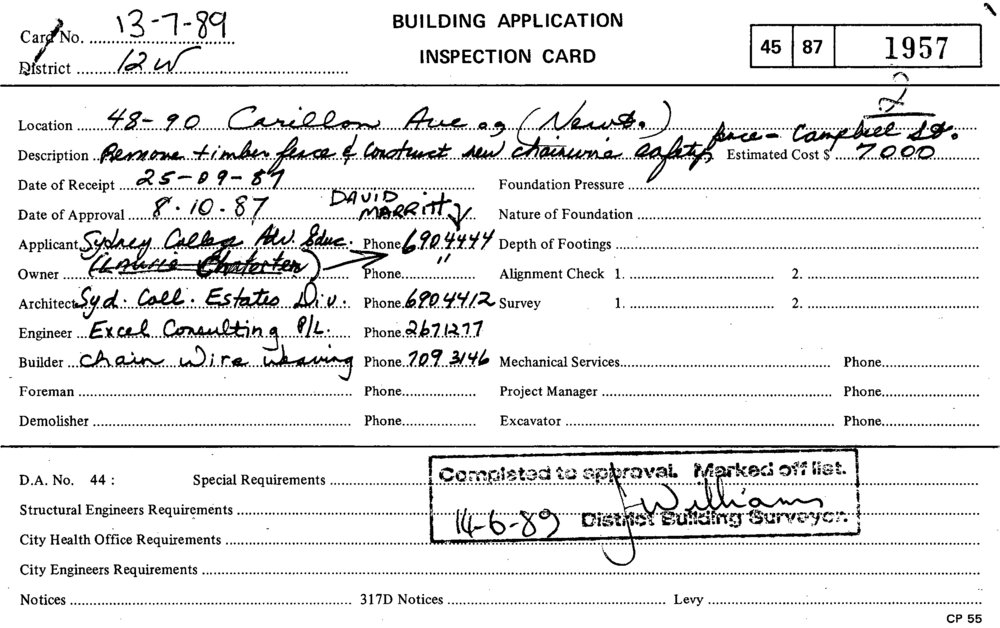 Card No. 13-7-89 BUILDING APPLICATION
District 12W INSPECTION CARD 45 87 1957
Location 48-90 Carillon Ave (Newt.)
Description Remove timber fence & Construct new chainwire safety fence - Campbell St. Estimated Cost $ 7000
Date of Receipt 25-09-87 Foundation Pressure
Date of Approval 8.10.87 DAVID MARRITT Nature of Foundation
Applicant Sydney College Adv. Educ. Phone 6904444 Depth of Footings
Owner Phone " Alignment Check 1. 2.
Architect Syd. Coll. Estates Div. Phone 6904412 Survey 1. 2.
Engineer Excel Consulting P/L. Phone 2671277
Builder chain wire weaving Phone 709 3146 Mechanical Services Phone
Foreman Phone Project Manager Phone
Demolisher Phone Excavator Phone
D.A. No. 44 : Special Requirements Completed to approval. Marked off list.
Structural Engineers Requirements JWilliams
14-6-89 District Building Surveyor.
City Health Office Requirements
City Engineers Requirements
Notices 317D Notices Levy
CP 55